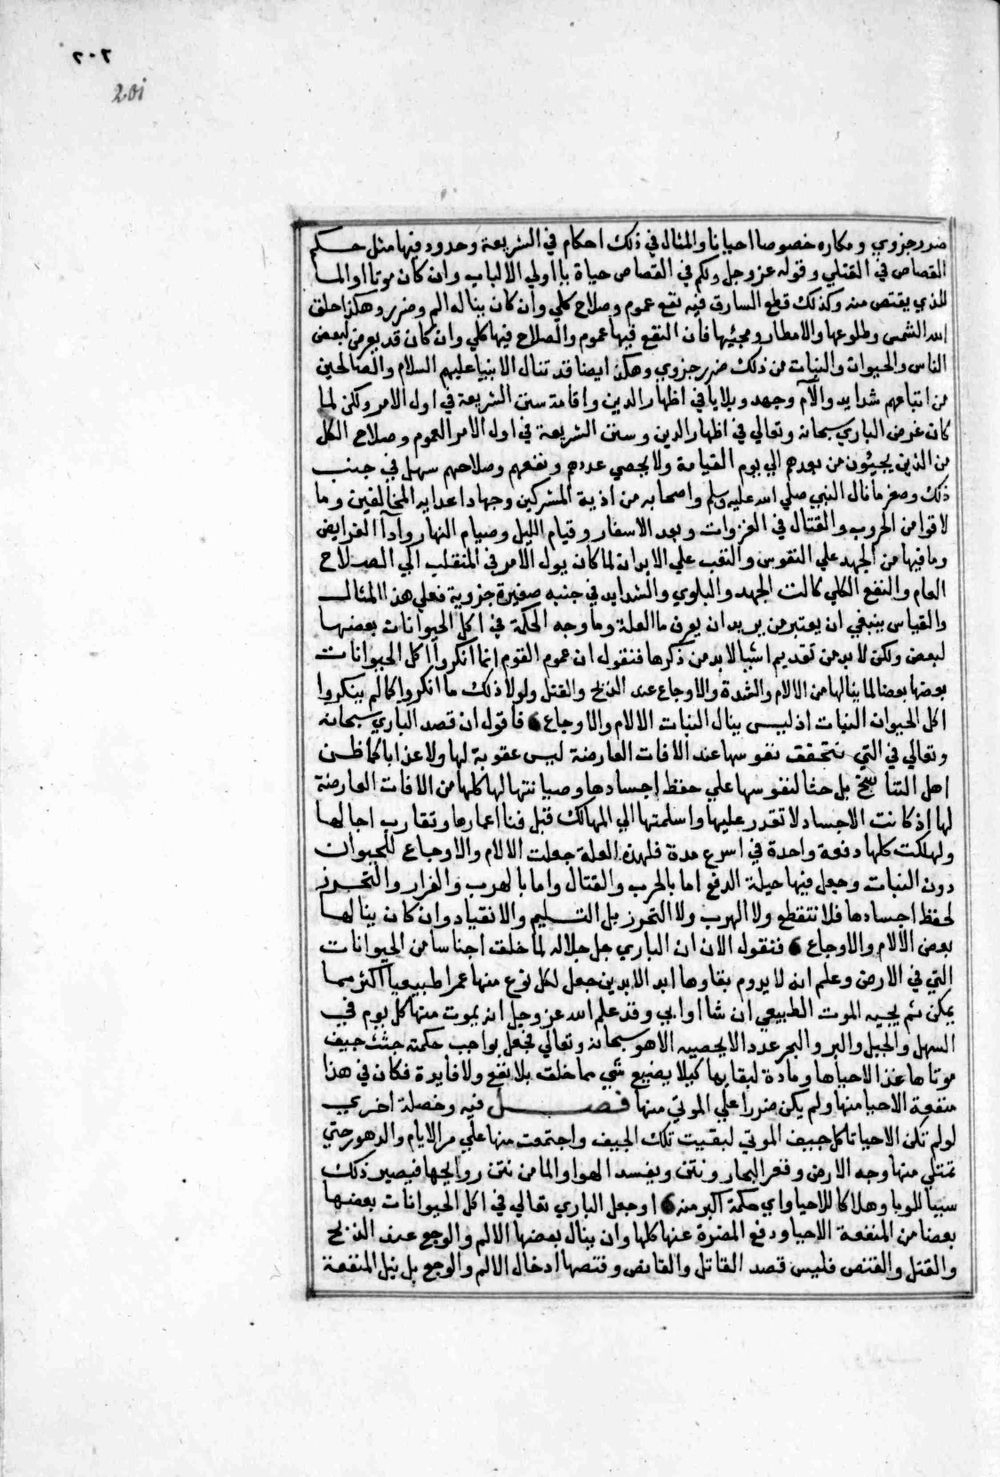 ٢٠٢
201
ضرر جزوي ومكاره خصوصا احيانا والمثال في ذلك احكام في الشريعة وحدود فيها مثل حكم
القصاص في القتلي وقوله عز وجل ولكم في القصاص حياة يا اولي الالباب وان كان موتا او الما
للذي يقتص منه وكذلك قطع السارق فيه نفع عموم وصلاح كلي وان كان يناله الم وضرر وهكذا خلق
الله الشمس وطلوعها والامطار ومجئيها فان النفع فيها عموم والصلاح فيها كلي وان كان قد يعرض لبعض
الناس والحيوان والنبات من ذلك ضرر جزوي وهكذا ايضا قد تنال الانبيا عليهم السلام والصالحين
من اتباعهم شدايد والآم وجهد وبلايا في اظهار الدين واقامة سنن الشريعة في اول الامر ولكن لما
كان غرض الباري سبحانه وتعالي في اظهار الدين وسنن الشريعة في اول الامر العموم وصلاح الكل
من الذين يجيئون من بعدهم الي يوم القيامة ولا يحصي عددهم ونفعهم وصلاحهم سهل في جنب
ذلك وصغر ما نال النبي صلي الله عليه وسلم واصحابه من اذية المشركين وجهاد اعدايه المخالفين وما
لاقوا من الحروب والقتال في الغزوات وبعد الاسفار وقيام الليل وصيام النهار وادآ الفرايض
وما فيها من الجهد علي النفوس والتعب علي الابدان لما كان يول الامر في المنقلب الي الصلاح
العام والنفع الكلي كالت الجهد والبلوي والشدايد في جنبه صغيرة جزوية فعلي هذا المثال
والقياس ينبغي ان يعتبر من يريد ان يعرف ما العلة وما وجه الحكمة في اكل الحيوانات بعضها
لبعض ولكن لا بد من تقديم اشيا لا بد من ذكرها فنقول ان عموم القوم انما انكروا اكل الحيوانات
بعضها بعضا لما ينالها من الالام والشدة والاوجاع عند الذبح والقتل ولولا ذلك ما انكروا كما لم ينكروا
اكل الحيوان النبات اذ ليس ينال النبات الالام والاوجاع 6 فاقول ان قصد الباري سبحانه
وتعالي في التي تتحقق نفوسها عند الافات العارضة ليس عقوبة لها ولا عذابا كما ظن
اهل التناسخ بل حثا لنفوسها علي حفظ اجسادها وصيانتها لها كلها من الافات العارضة
لها اذ كانت الاجساد لا تقدر عليها واسلمتها الي المهالك قبل فنا اعمارها وتقارب اجالها
ولهلكت كلها دفعة واحدة في اسرع مدة فلهذه العلة جعلت الالام والاوجاع للحيوان
دون النبات وجعل فيها حيلة الدفع اما بالحرب والقتال واما بالهرب والفرار والتحرز
لحفظ اجسادها فلا تنقطع ولا الهرب ولا التحرز بل التسليم والانقياد وان كان ينالها
بعض الالام والاوجاع 6 فنقول الان ان الباري جل جلاله لما خلق اجناسا من الحيوانات
التي في الارض وعلم انه لا يدوم بقاوها ابد الابدين جعل لكل نوع منها عمرا طبيعيا اكثر مما
يمكن ثم يجيه الموت الطبيعي ان شا او ابي وقد علم الله عز وجل انه يموت منها كل يوم في
السهل والجبل والبر والبحر عدد الا يحصيه الا هو سبحانه وتعالي فجعل بواجب حكمته جثث جيف
موتاها غذا لاحياها ومادة لبقايها كيلا يضيع شي مما خلق بلا نفع ولا فايدة فكان في هذا
منفعة الاحيا منها ولم يكن ضررا علي الموتي منها فصل فيه وخصلة اخري
لو لم تكن الاحيا تاكل جيف الموتي لبقيت تلك الجيف واجتمعت منها علي مر الايام والدهور حتي
تمتلي منها وجه الارض وقعر البحار ونتن ويفسد الهوا والما من نتن روايحها فيصير ذلك
سببا للوبا وهلاكا للاحيا واي حكمة اكبر منه 6 اوجعل الباري تعالي في اكل الحيوانات بعضها
بعضا من المنفعة الاحيا ودفع المضرة عنها كلها وان ينال بعضها الالم والوجع عند الذبح
والقتل والقنص فليس قصد القاتل والقابض وقنصها ادخال الالم والوجع بل نيل المنفعة